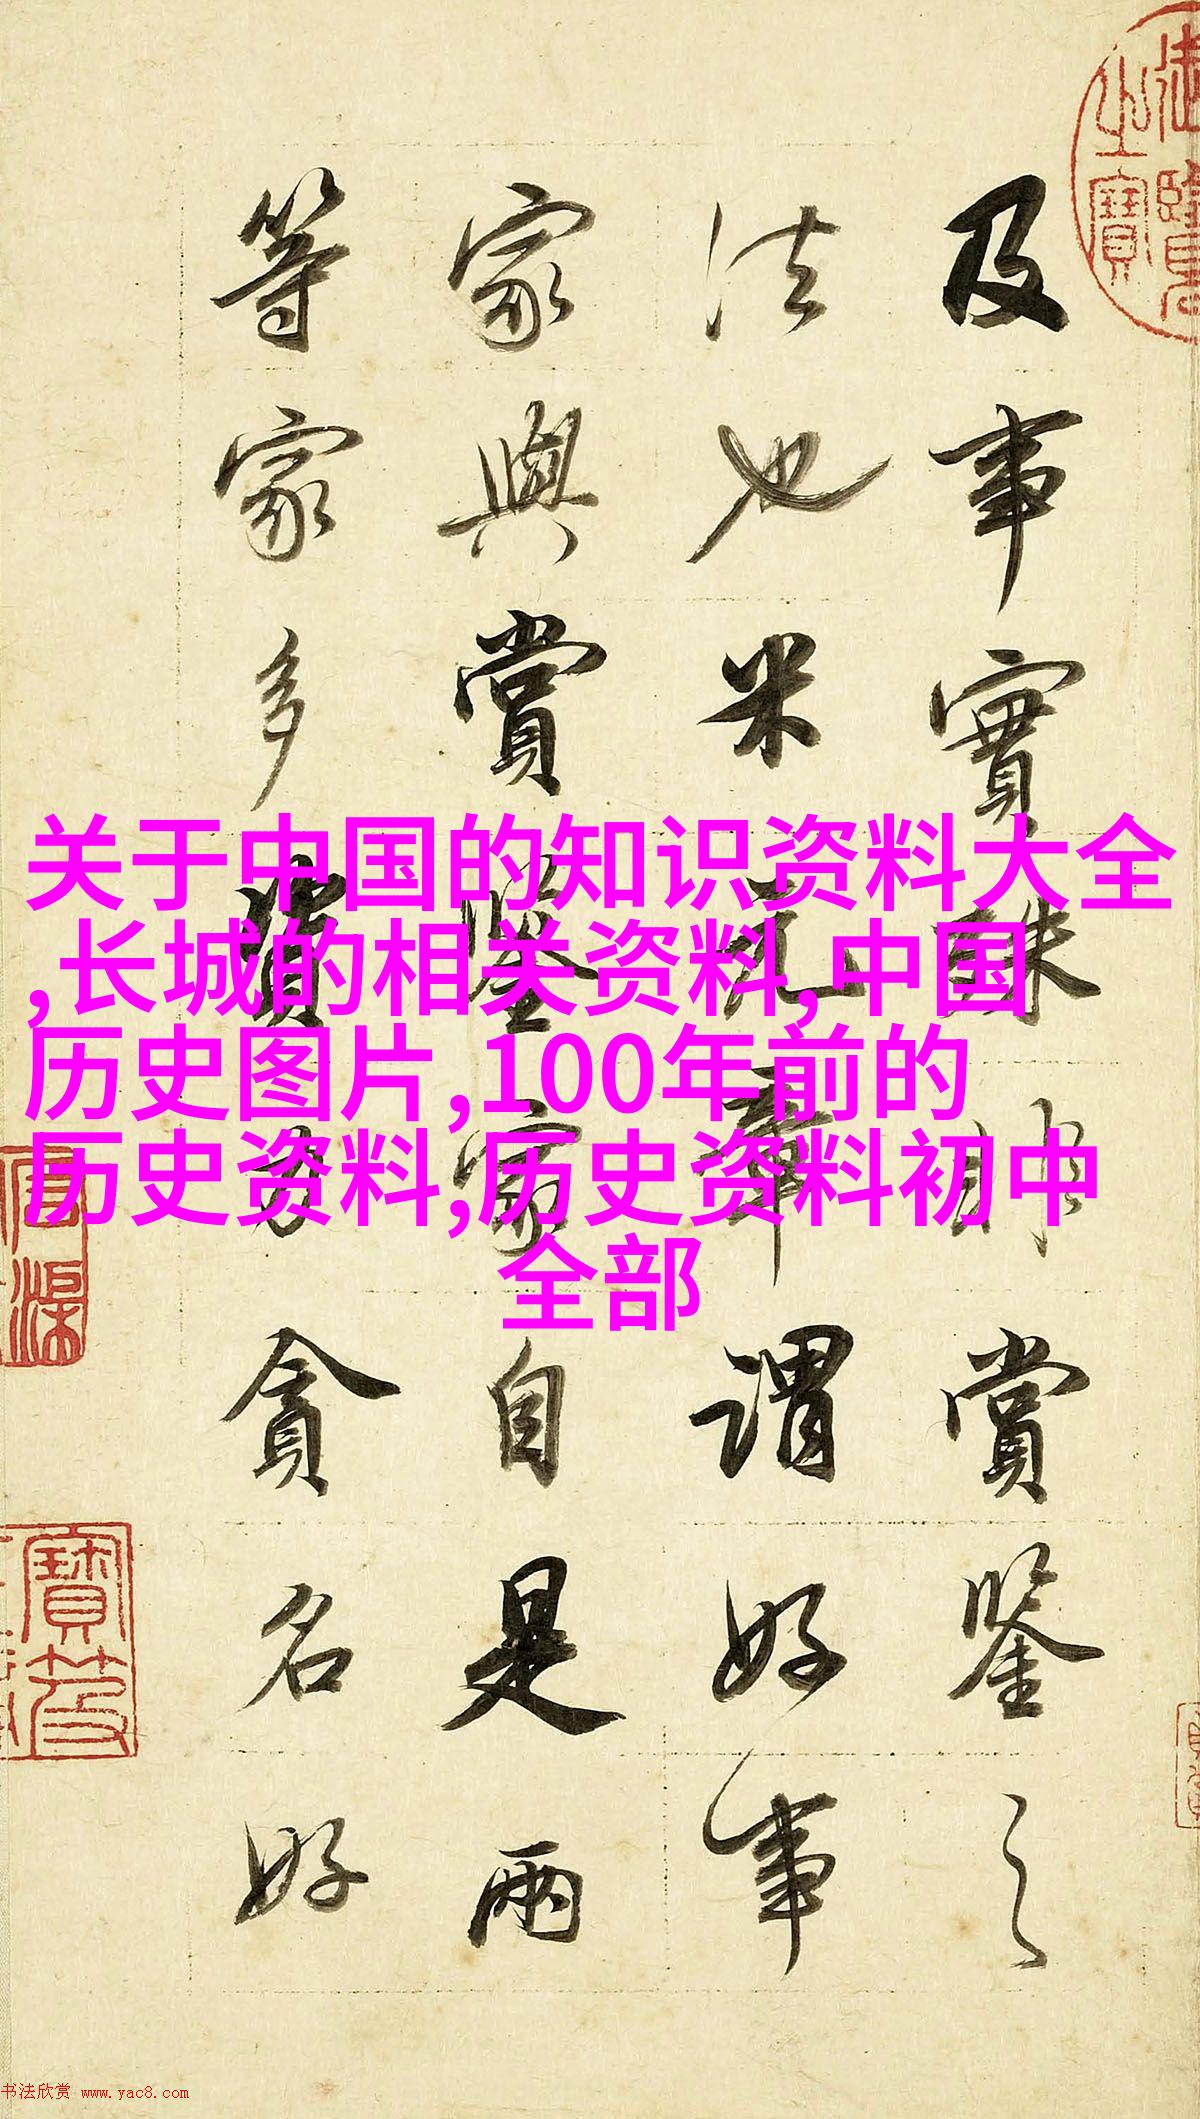 及事實殊賞鑒之
法也米元章謂好事
家與賞鑒家自是兩
等家多資力貪名好
关于中国的知识资料大全
,长城的相关资料,中国
历史图片,100年前的
历史资料,历史资料初中
全部
书法欣赏 www.yac8.com